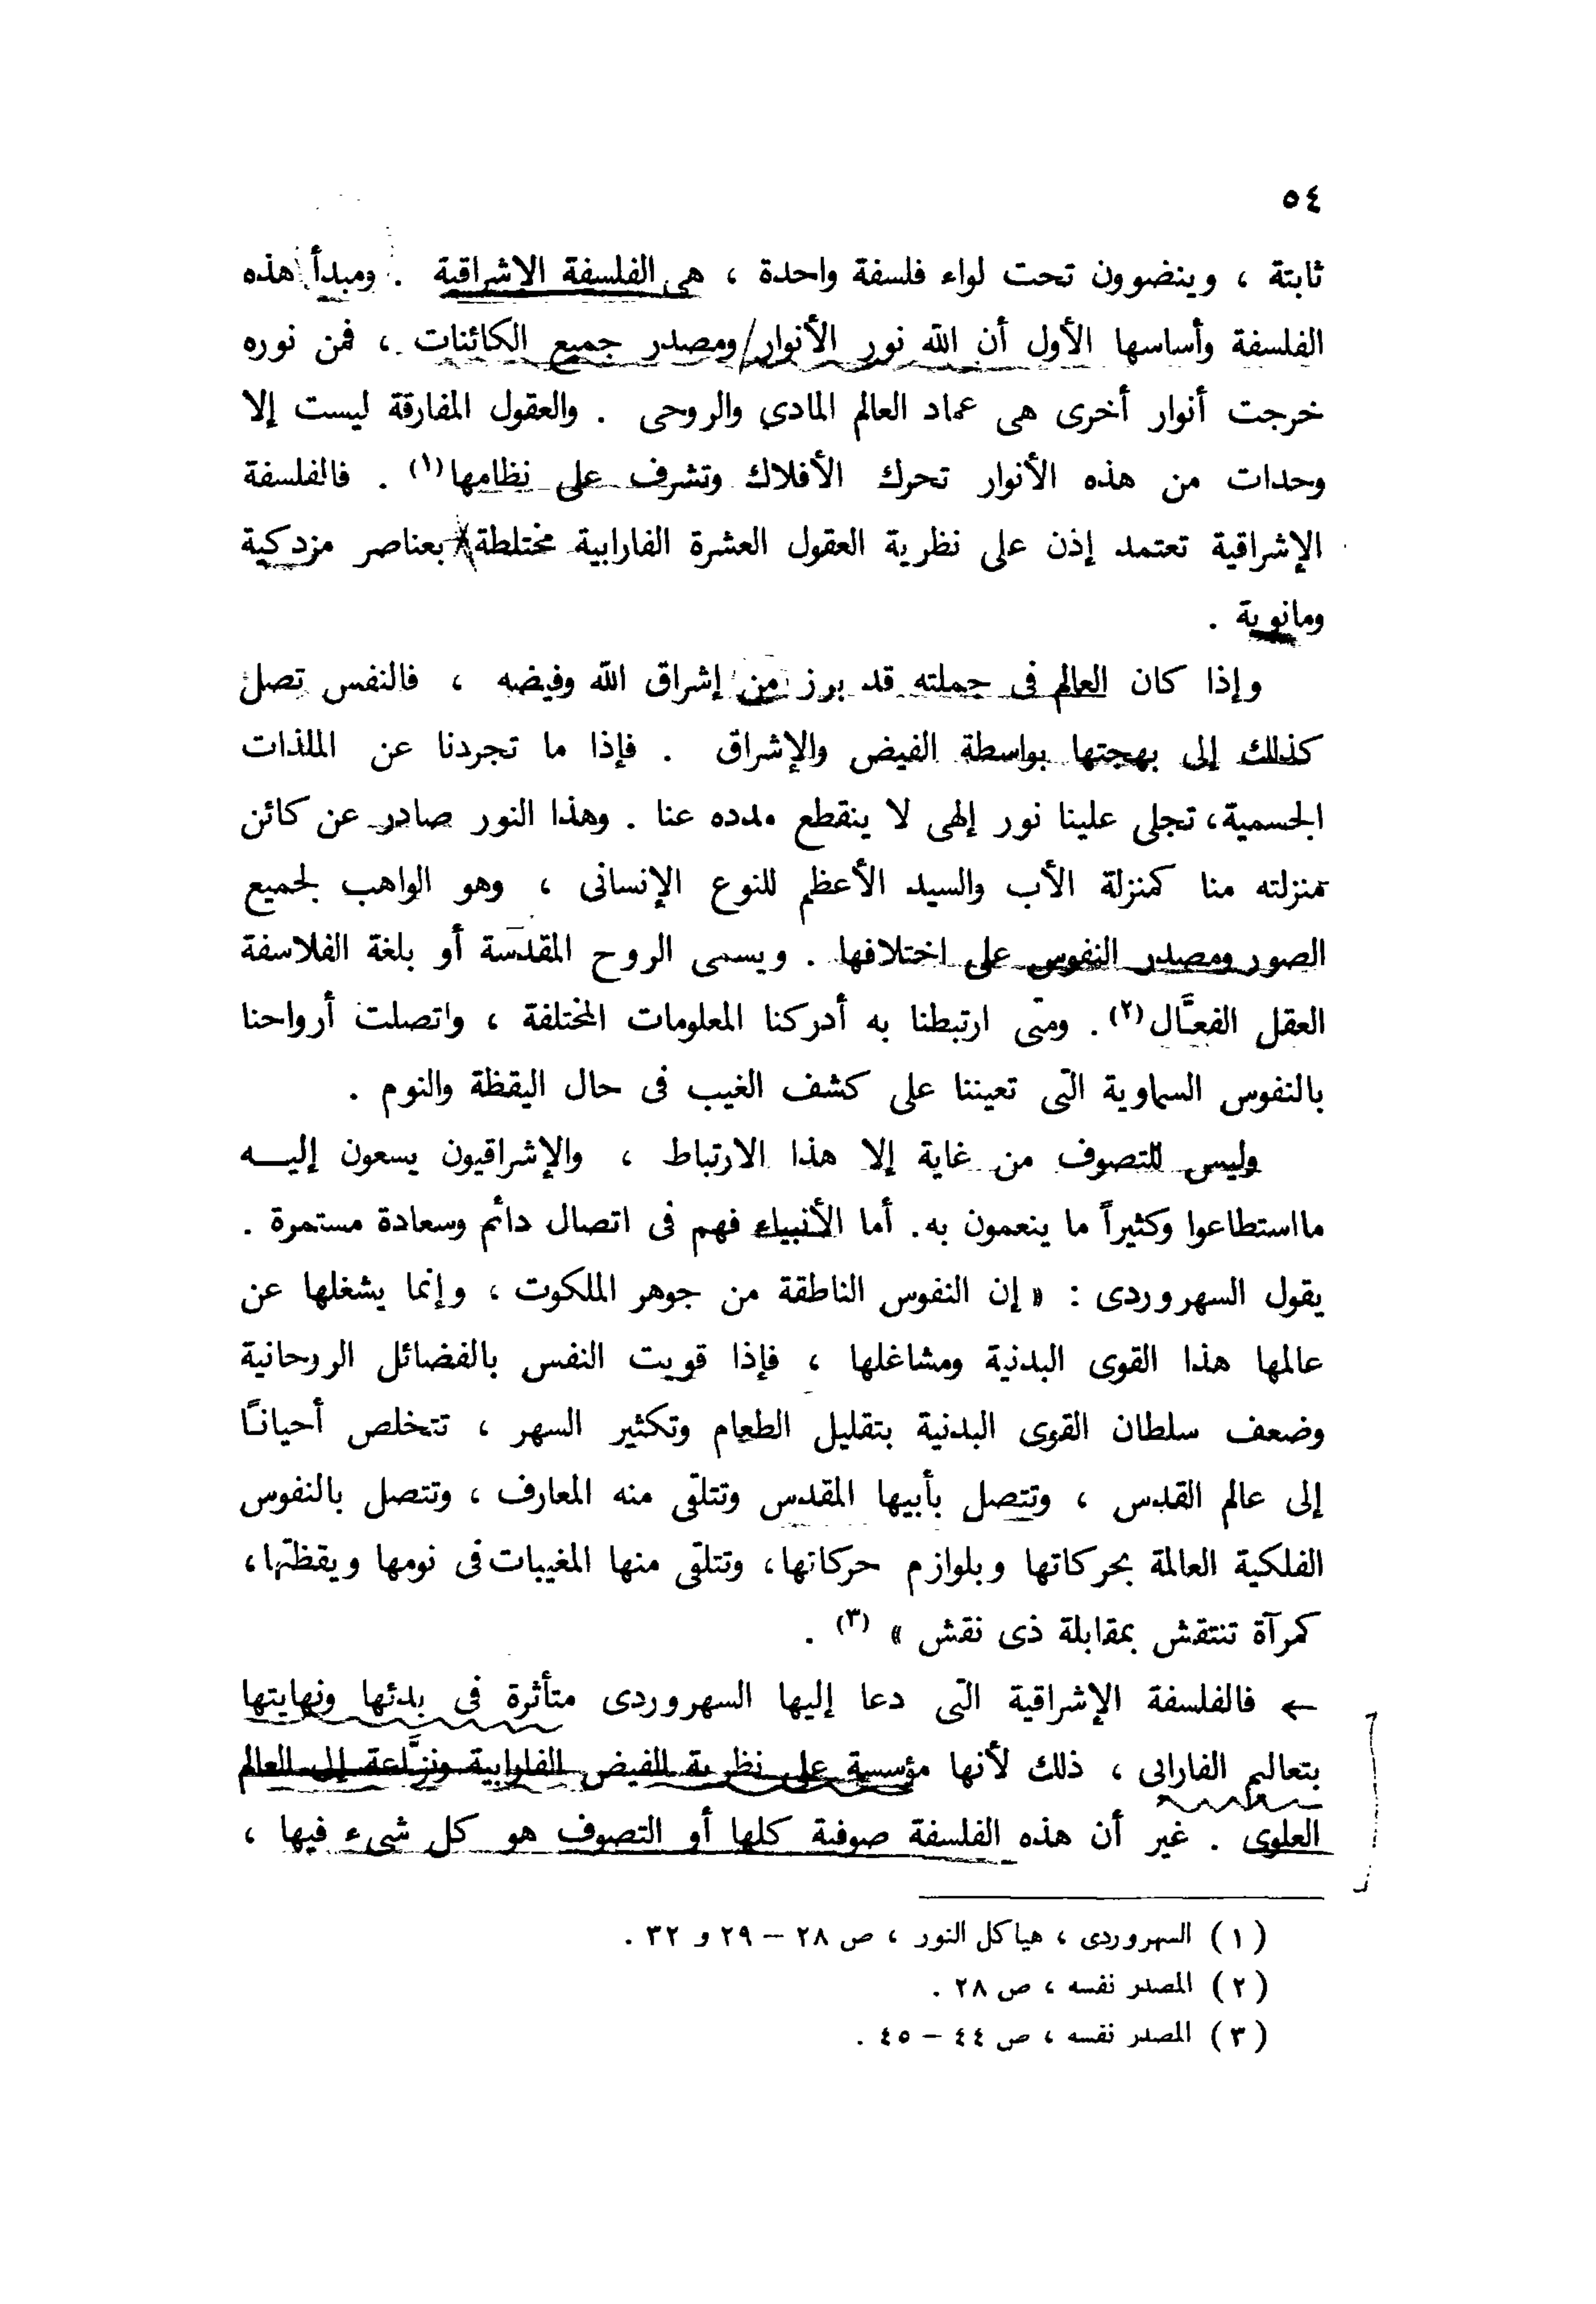 ٥٤
ثابتة ، وينضوون تحت لواء فلسفة واحدة ، هى الفلسفة الإشراقية . ومبدأ هذه
الفلسفة وأساسها الأول أن الله نور الأنوار ومصدر جميع الكائنات ، فمن نوره
خرجت أنوار أخرى هى عماد العالم المادى والروحى . والعقول المفارقة ليست إلا
وحدات من هذه الأنوار تحرك الأفلاك وتشرف على نظامها(١) . فالفلسفة
الإشراقية تعتمد إذن على نظرية العقول العشرة الفارابية مختلطة بعناصر مزدكية
ومانوية .
وإذا كان العالم فى جملته قد برز من إشراق الله وفيضه ، فالنفس تصل
كذلك إلى بهجتها بواسطة الفيض والإشراق . فإذا ما تجردنا عن الملذات
الجسمية، تجلى علينا نور إلهى لا ينقطع مدده عنا . وهذا النور صادر عن كائن
منزلته منا كمنزلة الأب والسيد الأعظم للنوع الإنسانى ، وهو الواهب لجميع
الصور ومصدر النفوس على اختلافها . ويسمى الروح المقدسة أو بلغة الفلاسفة
العقل الفعَّال(٢) . ومتى ارتبطنا به أدركنا المعلومات المختلفة ، واتصلت أرواحنا
بالنفوس السماوية التى تعيننا على كشف الغيب فى حال اليقظة والنوم .
وليس للتصوف من غاية إلا هذا الارتباط ، والإشراقيون يسعون إليــه
مااستطاعوا وكثيراً ما ينعمون به. أما الأنبياء فهم فى اتصال دائم وسعادة مستمرة .
يقول السهروردى : « إن النفوس الناطقة من جوهر الملكوت ، وإنما يشغلها عن
عالمها هذا القوى البدنية ومشاغلها ، فإذا قويت النفس بالفضائل الروحانية
وضعف سلطان القوى البدنية بتقليل الطعام وتكثير السهر ، تتخلص أحياناً
إلى عالم القدس ، وتتصل بأبيها المقدس وتتلقى منه المعارف ، وتتصل بالنفوس
الفلكية العالمة بحركاتها وبلوازم حركاتها، وتتلقى منها المغيبات فى نومها ويقظتها،
كمرآة تنتقش بمقابلة ذى نقش » (٣) .
← فالفلسفة الإشراقية التى دعا إليها السهروردى متأثرة فى بدئها ونهايتها
بتعاليم الفارابى ، ذلك لأنها مؤسسة على نظرية الفيض الفارابية ونزَّاعة إلى العالم
العلوى . غير أن هذه الفلسفة صوفية كلها أو التصوف هو كل شىء فيها ،
(١) السهروردى ، هياكل النور ، ص ٢٨ – ٢٩ و ٣٢ .
(٢) المصدر نفسه ، ص ٢٨ .
(٣) المصدر نفسه ، ص ٤٤ – ٤٥ .